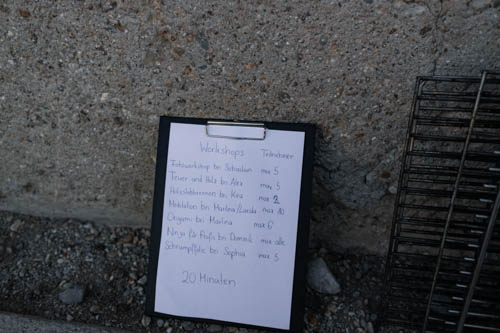 Workshops Teilnehmer
Fotoworkshop bei Sebastian max 5
Feuer und Holz bei Alex max 5
bei Kira max 2
Meditation bei Marlena max 10
Origami bei Marlena max 6
Ninja für Profis bei Dominik max alle
Schrumpffolie bei Sophia max 5
20 Minuten